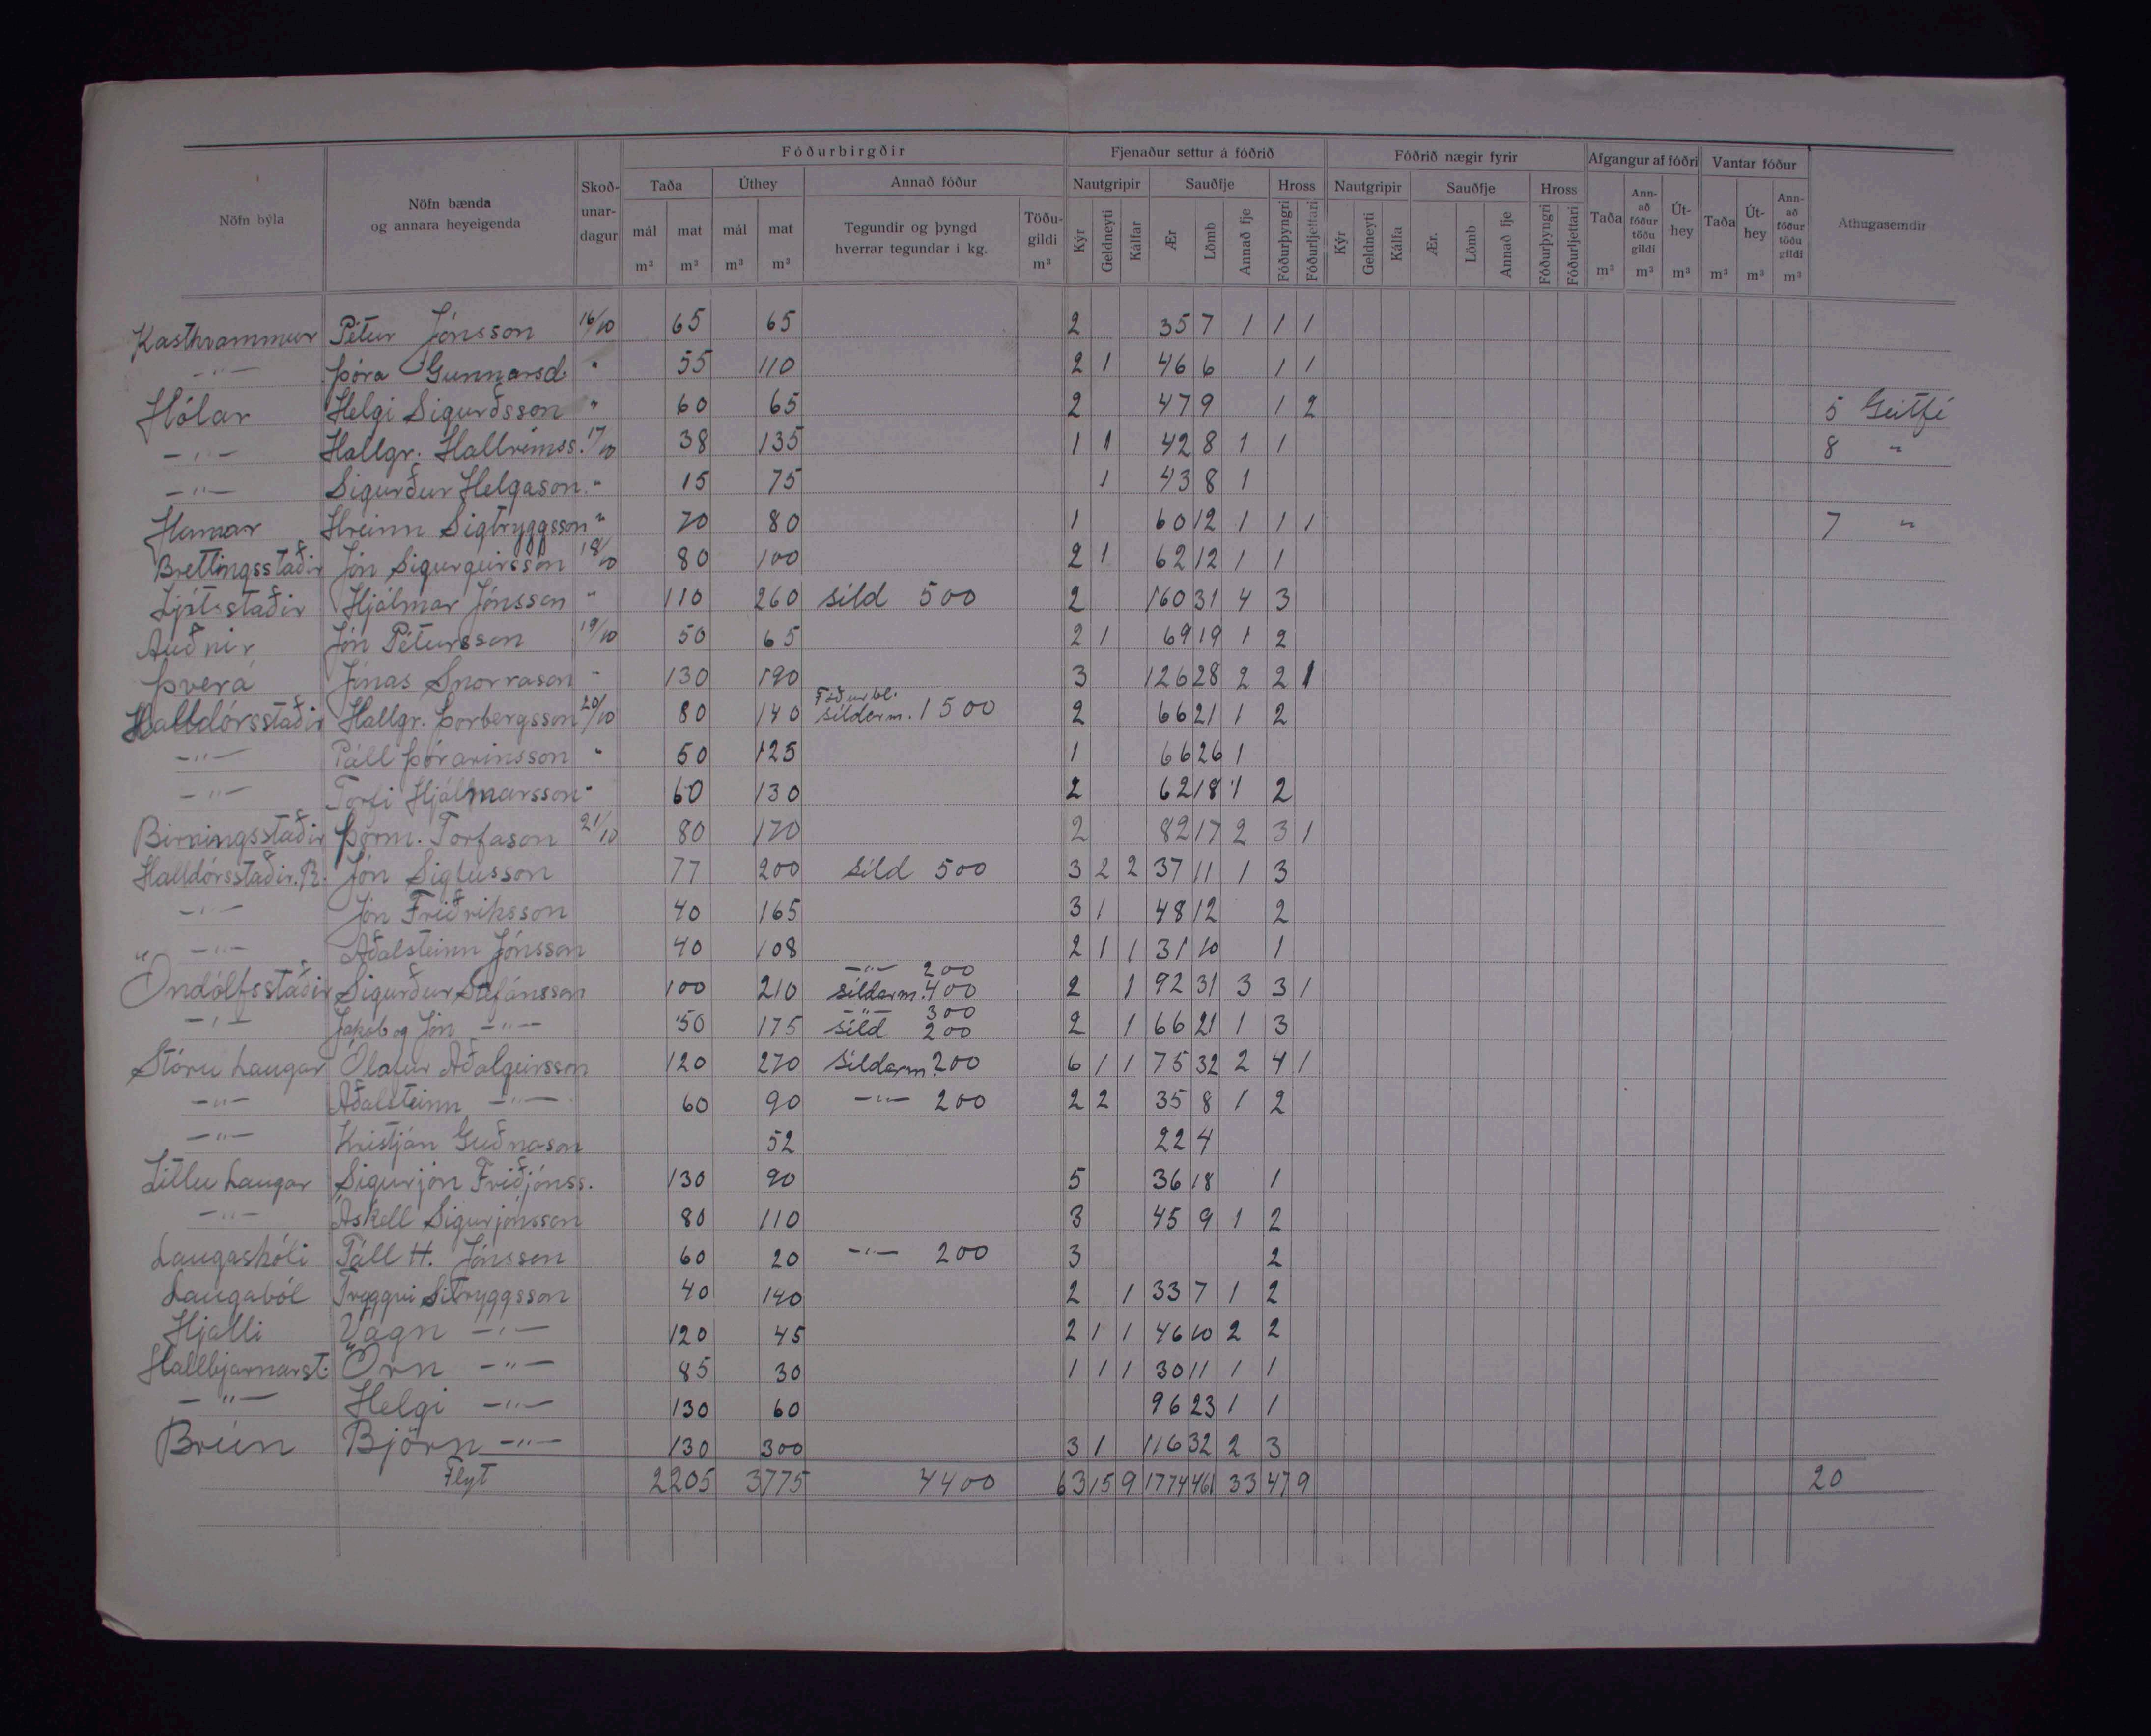 Fóðurbirgðir Fjenaður settur á fóðrið Fóðrið nægir fyrir Afgangur af fóðri Vantar fóður
Nöfn býla Nöfn bænda og annara heyeigenda Skoð-unar-dagur Taða Úthey Annað fóður Nautgripir Sauðfje Hross Nautgripir Sauðfje Hross Taða Ann-að fóður töðu gildi Út-hey Taða Út-hey Ann-að fóður töðu gildi Athugasemdir
mál mat mál mat Tegundir og þyngd hverrar tegundar í kg. Töðu-gildi Kýr Geldneyti Kálfar Ær Lömb Annað fje Fóðurþyngri Fóðurljettari Kýr Geldneyti Kálfa Ær. Lömb Annað fje Fóðurþyngri Fóðurljettari
m³ m³ m³ m³ m³ m³ m³ m³ m³ m³ m³
Kasthvammur Pétur Jónsson 16/10 65 65 2 35 7 1 1 1
-"- Þóra Gunnarsd. " 55 110 2 1 46 6 1 1
Hólar Helgi Sigurðsson " 60 65 2 47 9 1 2 5 Geitfé
-"- Hallgr. Hallrímss. 17/10 38 135 1 1 42 8 1 1 8 "
-"- Sigurður Helgason " 15 75 1 43 8 1
Hamar Hreinn Sigtryggsson " 70 80 1 60 12 1 1 1 7 "
Brettingsstaðir Jón Sigurgeirsson 18/10 80 100 2 1 62 12 1 1
Ljótsstaðir Hjálmar Jónsson " 110 260 síld 500 2 160 31 4 3
Auðnir Jón Pétursson 19/10 50 65 2 1 69 19 1 2
Þverá Jónas Snorrason " 130 190 3 126 28 2 2 1
Halldórsstaðir Hallgr. Þorbergsson 20/10 80 140 Fóðurbl. síldarm. 1500 2 66 21 1 2
-"- Páll Þórarinsson " 50 125 1 66 26 1
-"- Torfi Hjálmarsson " 60 130 2 62 18 1 2
Birningsstaðir Þorm. Torfason 21/10 80 170 2 82 17 2 3 1
Halldórsstaðir. R. Jón Sigfússon 77 200 síld 500 3 2 2 37 11 1 3
-"- Jón Friðriksson 40 165 3 1 48 12 2
-"- Aðalsteinn Jónsson 40 108 2 1 1 31 10 1
Öndólfsstaðir Sigurður Stefánsson 100 210 -"- 200 síldarm. 400 2 1 92 31 3 3 1
-"- Jakob og Jón -"- 50 175 -"- 300 síld 200 2 1 66 21 1 3
Stóru Laugar Ólafur Aðalgeirsson 120 270 síldarm. 200 6 1 1 75 32 2 4 1
-"- Aðalsteinn -"- 60 90 -"- 200 2 2 35 8 1 2
-"- Kristján Guðnason 52 22 4
Litlu Laugar Sigurjón Friðjónss. 130 90 5 36 18 1
-"- Áskell Sigurjónsson 80 110 3 45 9 1 2
Laugashóli Páll H. Jónsson 60 20 -"- 200 3 2
Laugaból Tryggvi Sitryggsson 40 140 2 1 33 7 1 2
Hjalli Vagn -"- 120 45 2 1 1 46 10 2 2
Hallbjarnarst. Örn -"- 85 30 1 1 1 30 11 1 1
-"- Helgi -"- 130 60 96 23 1 1
Brún Björn -"- 130 300 3 1 116 32 2 3
Flyt 2205 3775 4400 63 15 9 1774 461 33 47 9 20